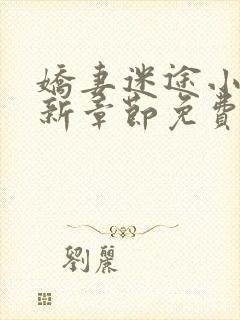 嬌妻迷途小
新章節免費
劉麗